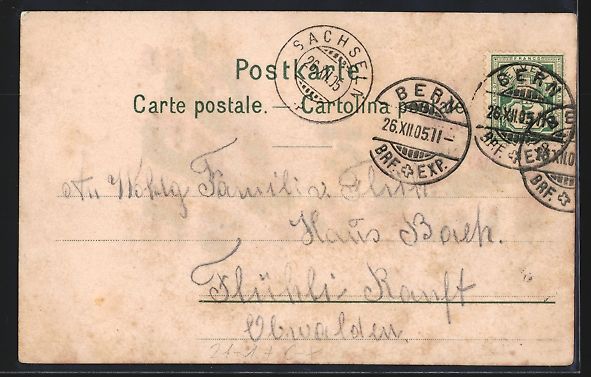 SACHSELN
26.XII.05
Postkarte.
Carte postale. — Cartolina postale
BERN
26.XII.05.11—
BRF. EXP.
FRANCO
BERN
26.XII.05.11
BRF. EXP.
XII.05
BRF.
An Wohlg Familie
Haus Bach.
Flühli Ranft
Obwalden